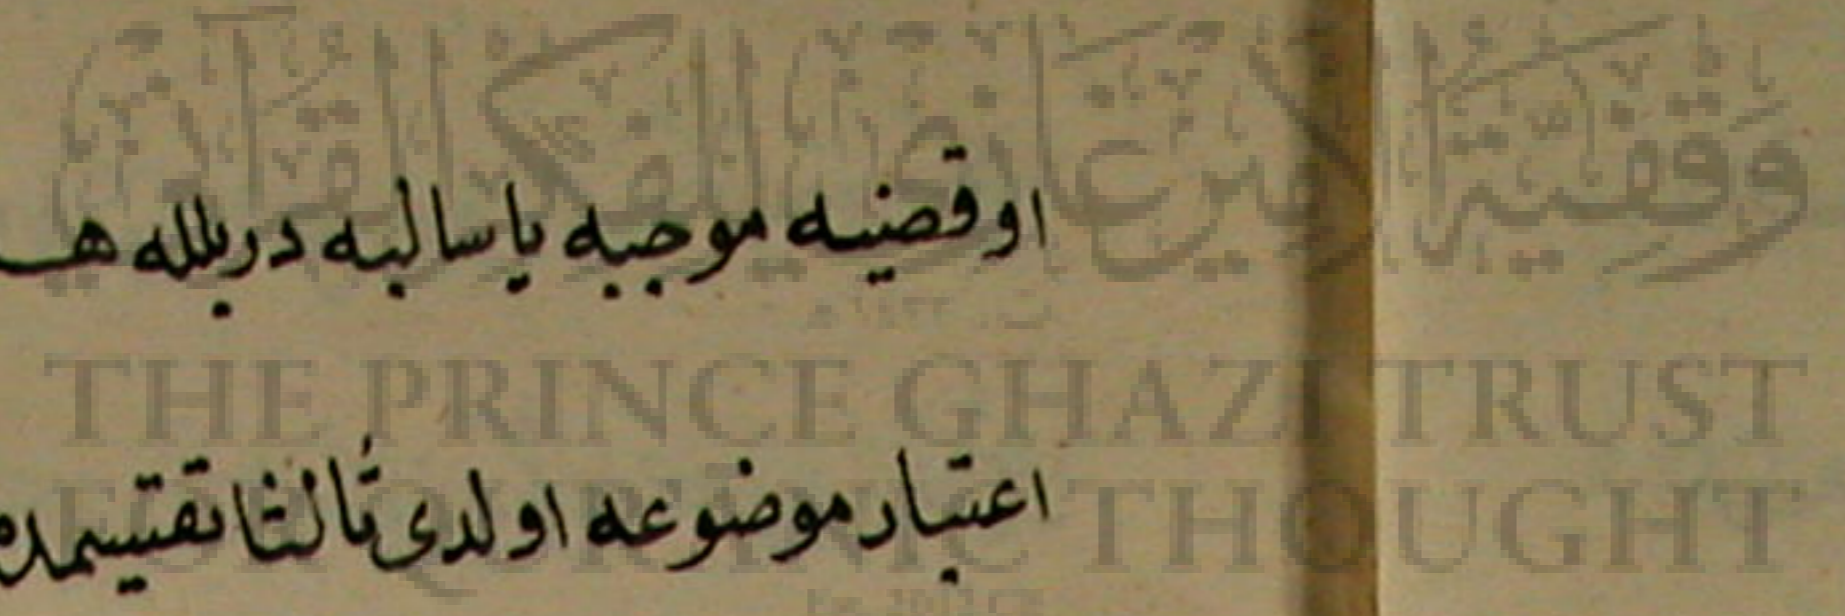 وقفية الأمير غازي للفكر القرآني
او قضيه موجبه يا سالبه در بلله هـ
THE PRINCE GHAZI TRUST
اعتبار موضوعه اولدى ثالثا تقسيمده
FOR QUR'ANIC THOUGHT